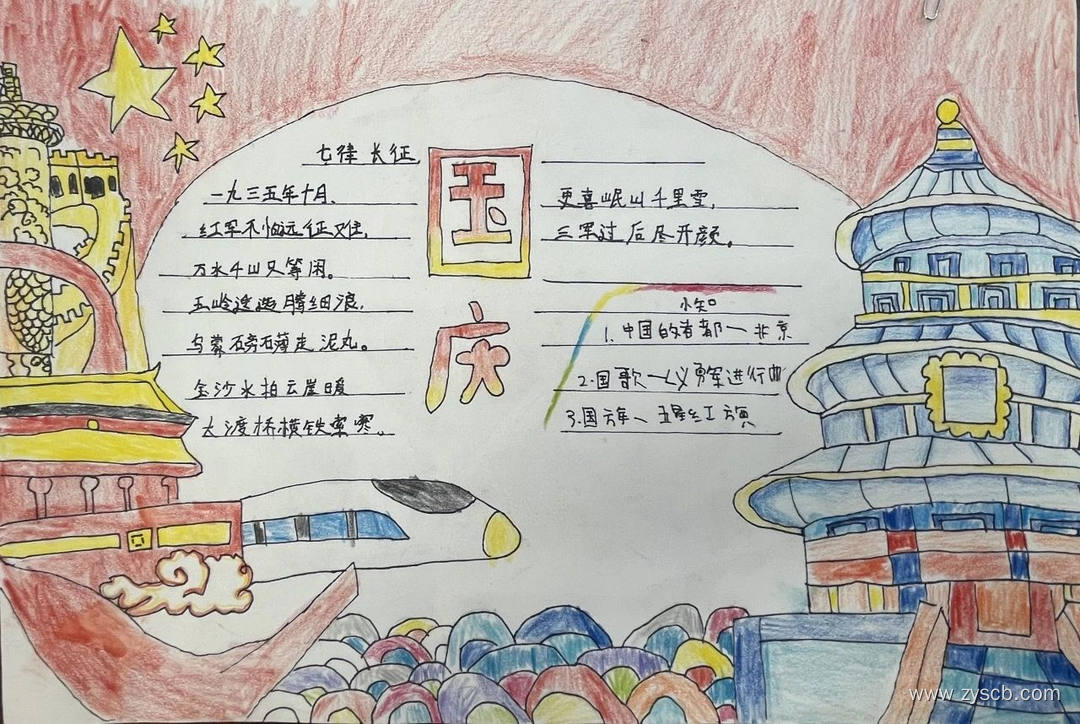 七律 长征
一九三五年十月、
红军不怕远征难,
万水千山只等闲。
五岭逶迤腾细浪,
乌蒙磅礴走泥丸。
金沙水拍云崖暖
大渡桥横铁索寒。
国
庆
更喜岷山千里雪,
三军过后尽开颜。
小知
1. 中国的首都一北京
2.国歌一义勇军进行曲
3.国旗、五星红旗
www.zyscb.com